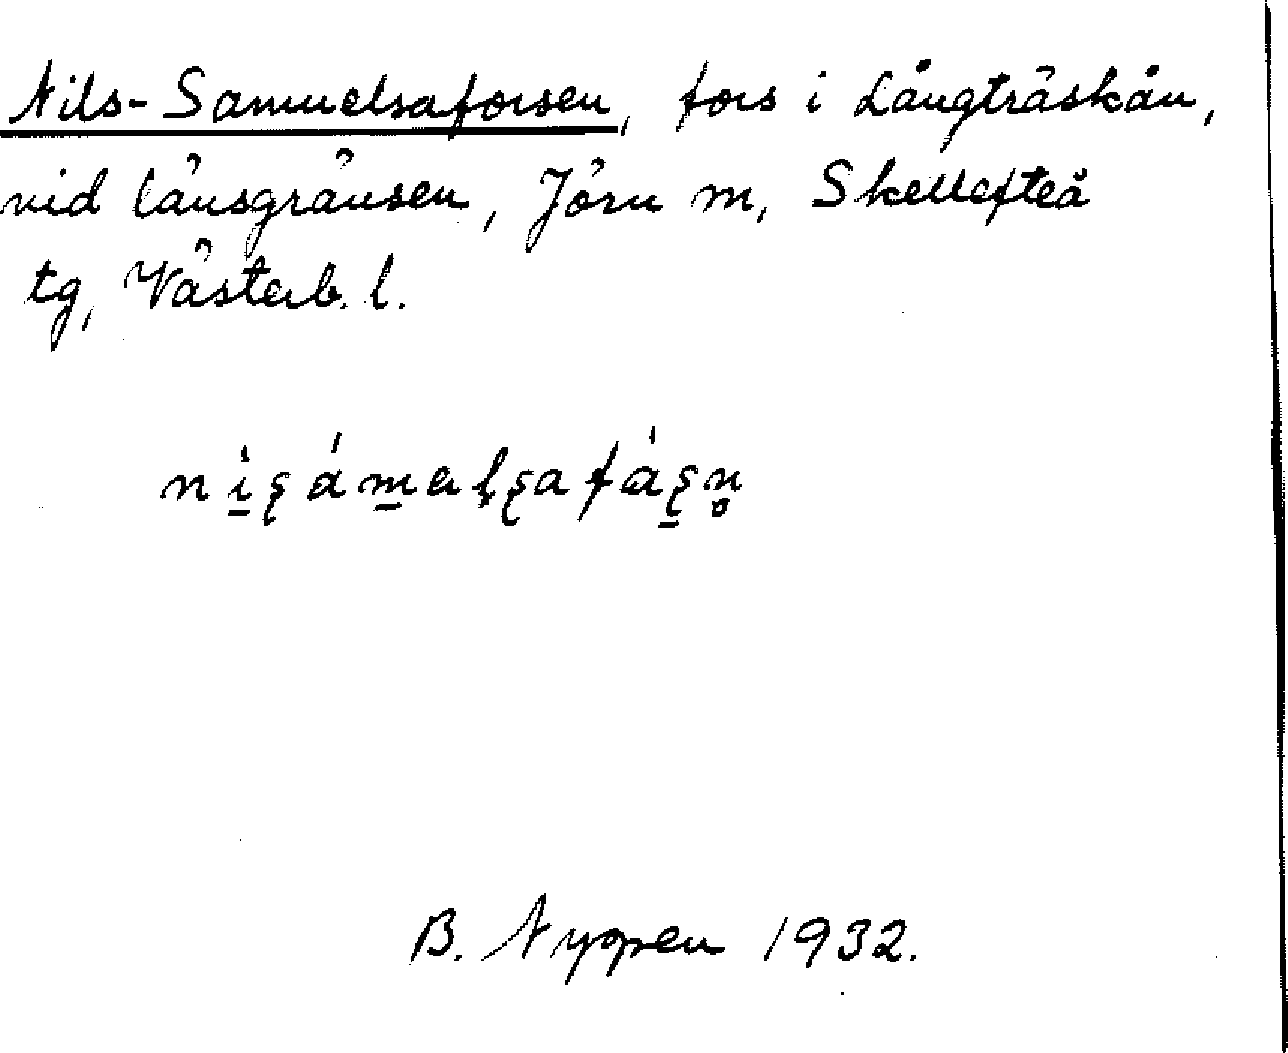 Nils-Samuelsaforsen, fors i Långträskån,
vid länsgränsen, Jörn m, Skellefteå
tg, Västerb. l.
B. Nygren 1932.